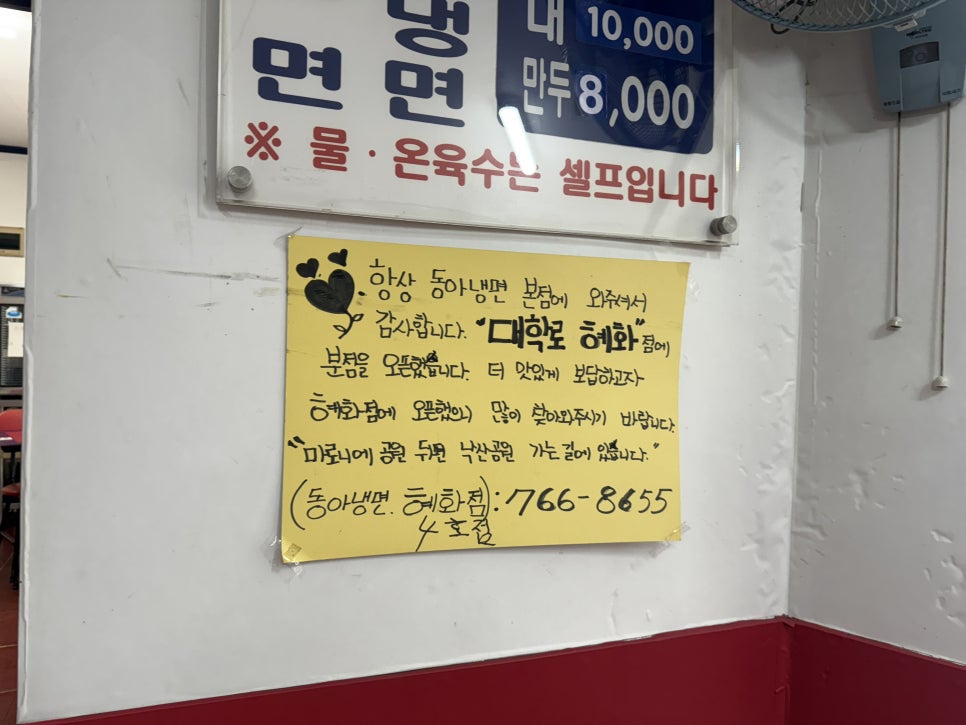 냉 내 10,000
면 면 만두 8,000
※ 물 · 온육수는 셀프입니다
항상 동아냉면 본점에 와주셔서
감사합니다. "대학로 혜화"점에
분점을 오픈했습니다. 더 맛있게 보답하고자
혜화점에 오픈했으니 많이 찾아와주시기 바랍니다.
"마로니에 공원 뒤편 낙산공원 가는 길에 있습니다."
(동아냉면. 혜화점):766-8655
4호점